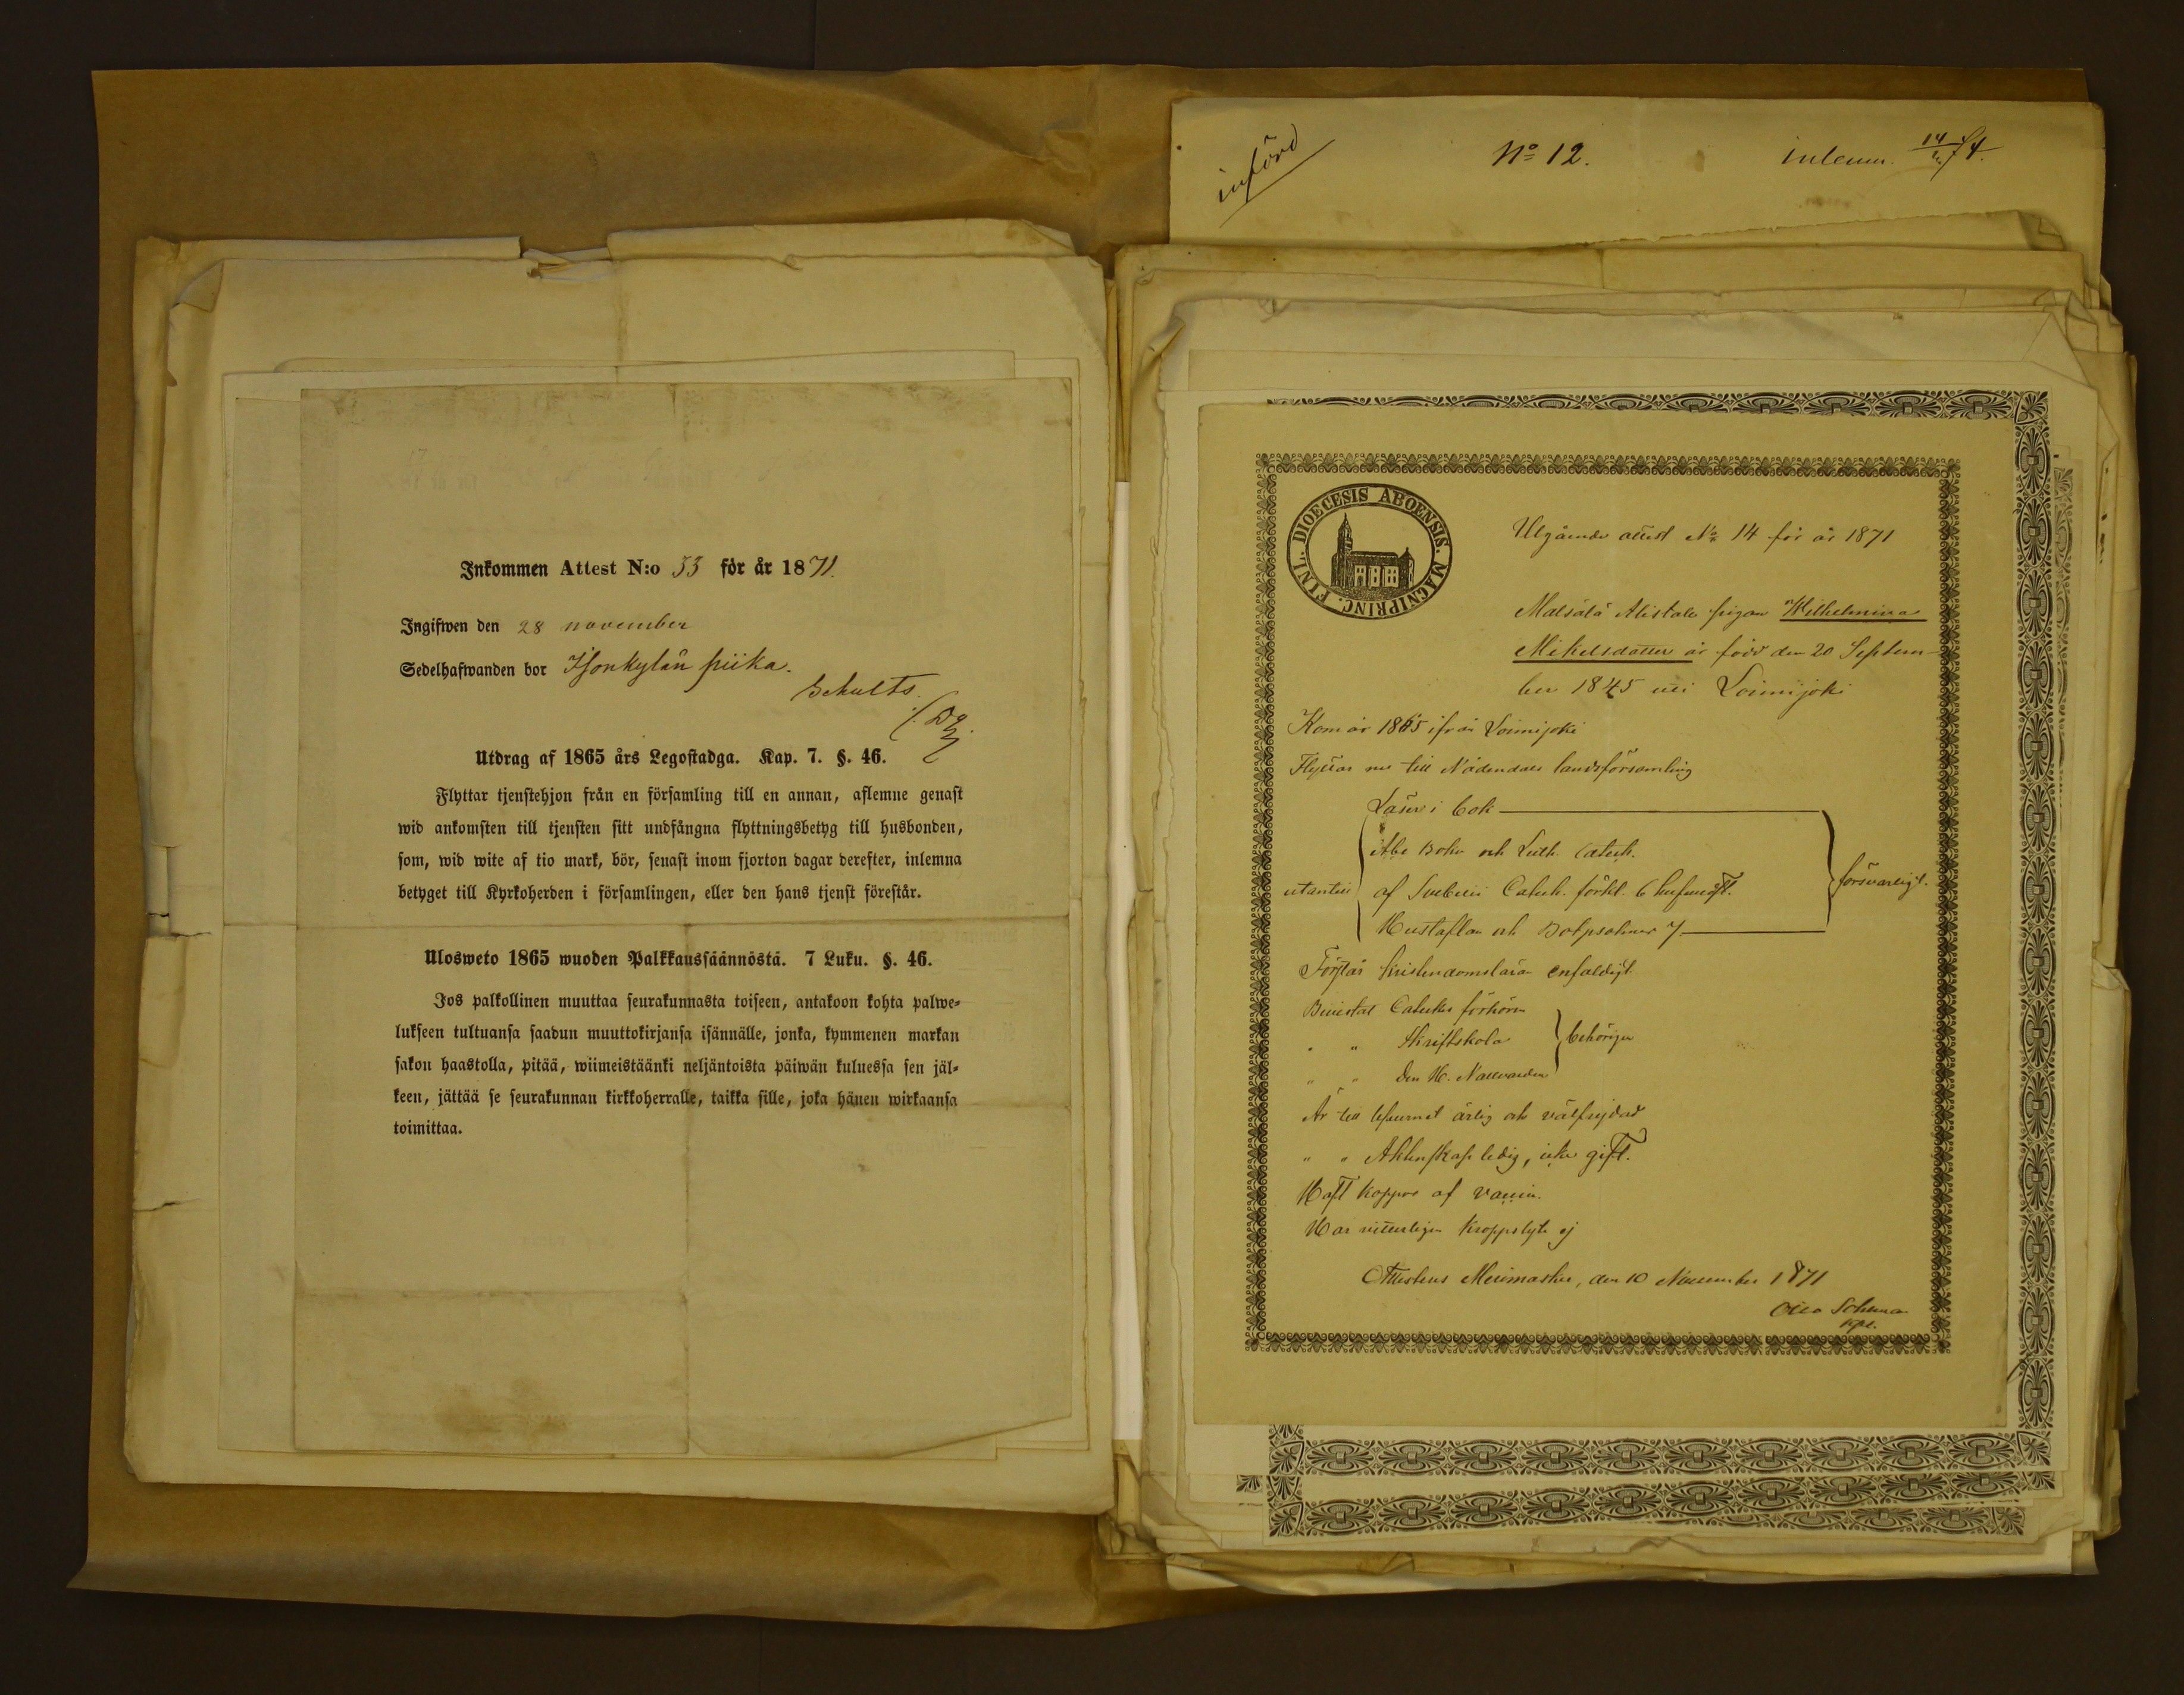 Inkommen Attest N:o 53 för år 1871.
Ingifwen den 28 november
Sedelhafwanden bor Isonkylän piika.
Schults.
Utdrag af 1865 års Legostadga. Kap. 7. §. 46.
Flyttar tjenstehjon från en församling till en annan, aflemne genast
wid ankomsten till tjensten sitt undfångna flyttningsbetyg till husbonden,
som, wid wite af tio mark, bör, senast inom fjorton dagar derefter, inlemna
betyget till Kyrkoherden i församlingen, eller den hans tjenst förestår.
Ulosweto 1865 wuoden Palkkaussäännöstä. 7 Luku. §. 46.
Jos palkollinen muuttaa seurakunnasta toiseen, antakoon kohta palwe-
lukseen tultuansa saadun muuttokirjansa isännälle, jonka, kymmenen markan
sakon haastolla, pitää, wiimeistäänki neljäntoista päiwän kuluessa sen jäl-
keen, jättää se seurakunnan kirkkoherralle, taikka sille, joka hänen wirkaansa
toimittaa.
införd
No 12.
inlemn. 14/ 74.
FINL. DIOECESIS ABOENSIS. MAGNIPRINC.
Utgående attest No 14 för år 1871
Alistalo pigan Wilhelmina
Mikelsdotter är född den 20 Septem-
ber 1845 uti Loimijoki
Kom år 1865 ifrån Loimijoki
Flyttar nu till Nådendals landsförsamling
Läser i bok
Abc Boken och Luth. Catech.
utantill
af Svebelii Catech. förkl. 6 hufvudst.
Hustaflan och Botpsalmer 7
försvarligt.
Förstår kristendomslära enfaldigt
Bivistat Catechis förhören
" " Skriftskola
behörigen
" " Den H. Nattvarden
Är till lefvernet ärlig och välfrejdad
" " Äktenskap ledig, icke gift.
Haft koppor af vaccin.
Har vetterligen kroppslyte ej
Attesteras Merimasku, den 10 November 1871
Otto
kpl.